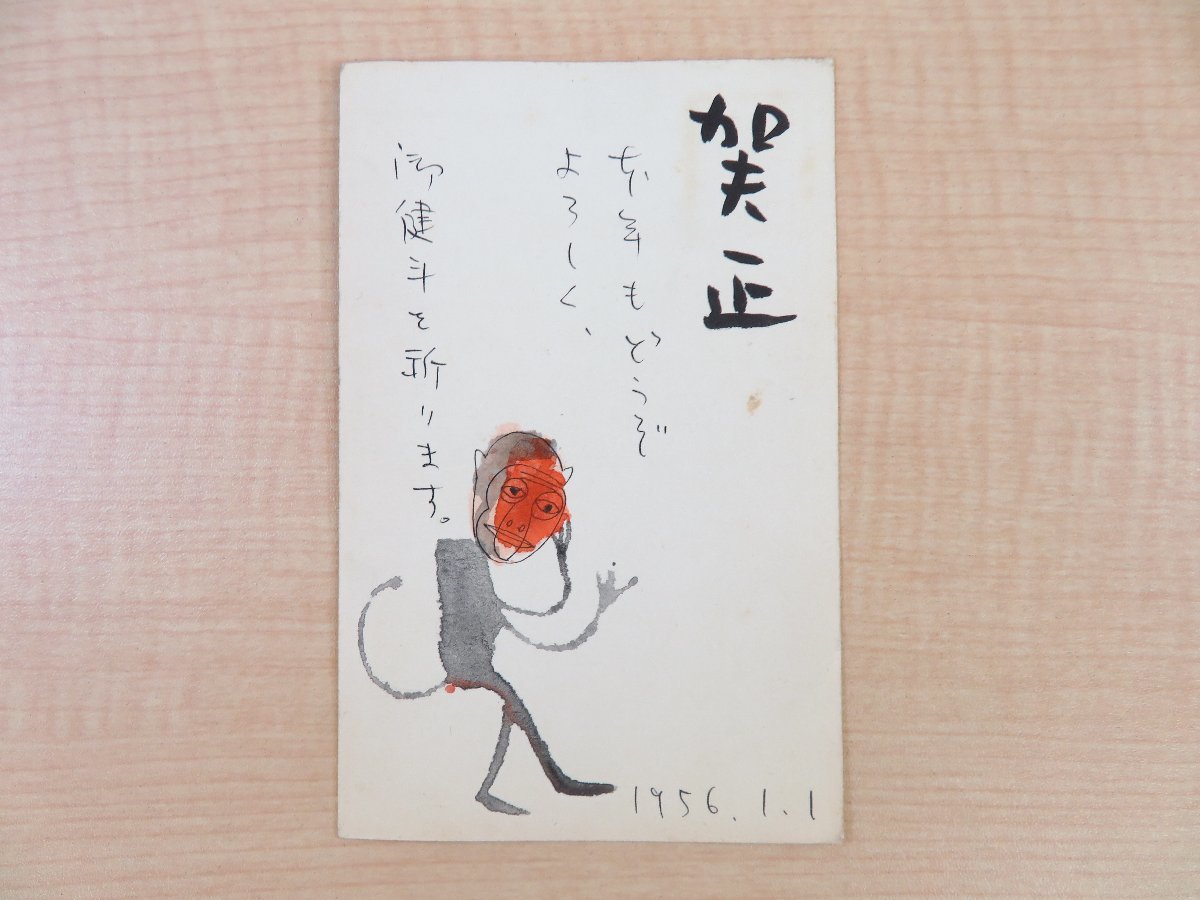 賀正
本年もどうぞ
よろしく、
御健斗を祈ります。
1956.1.1